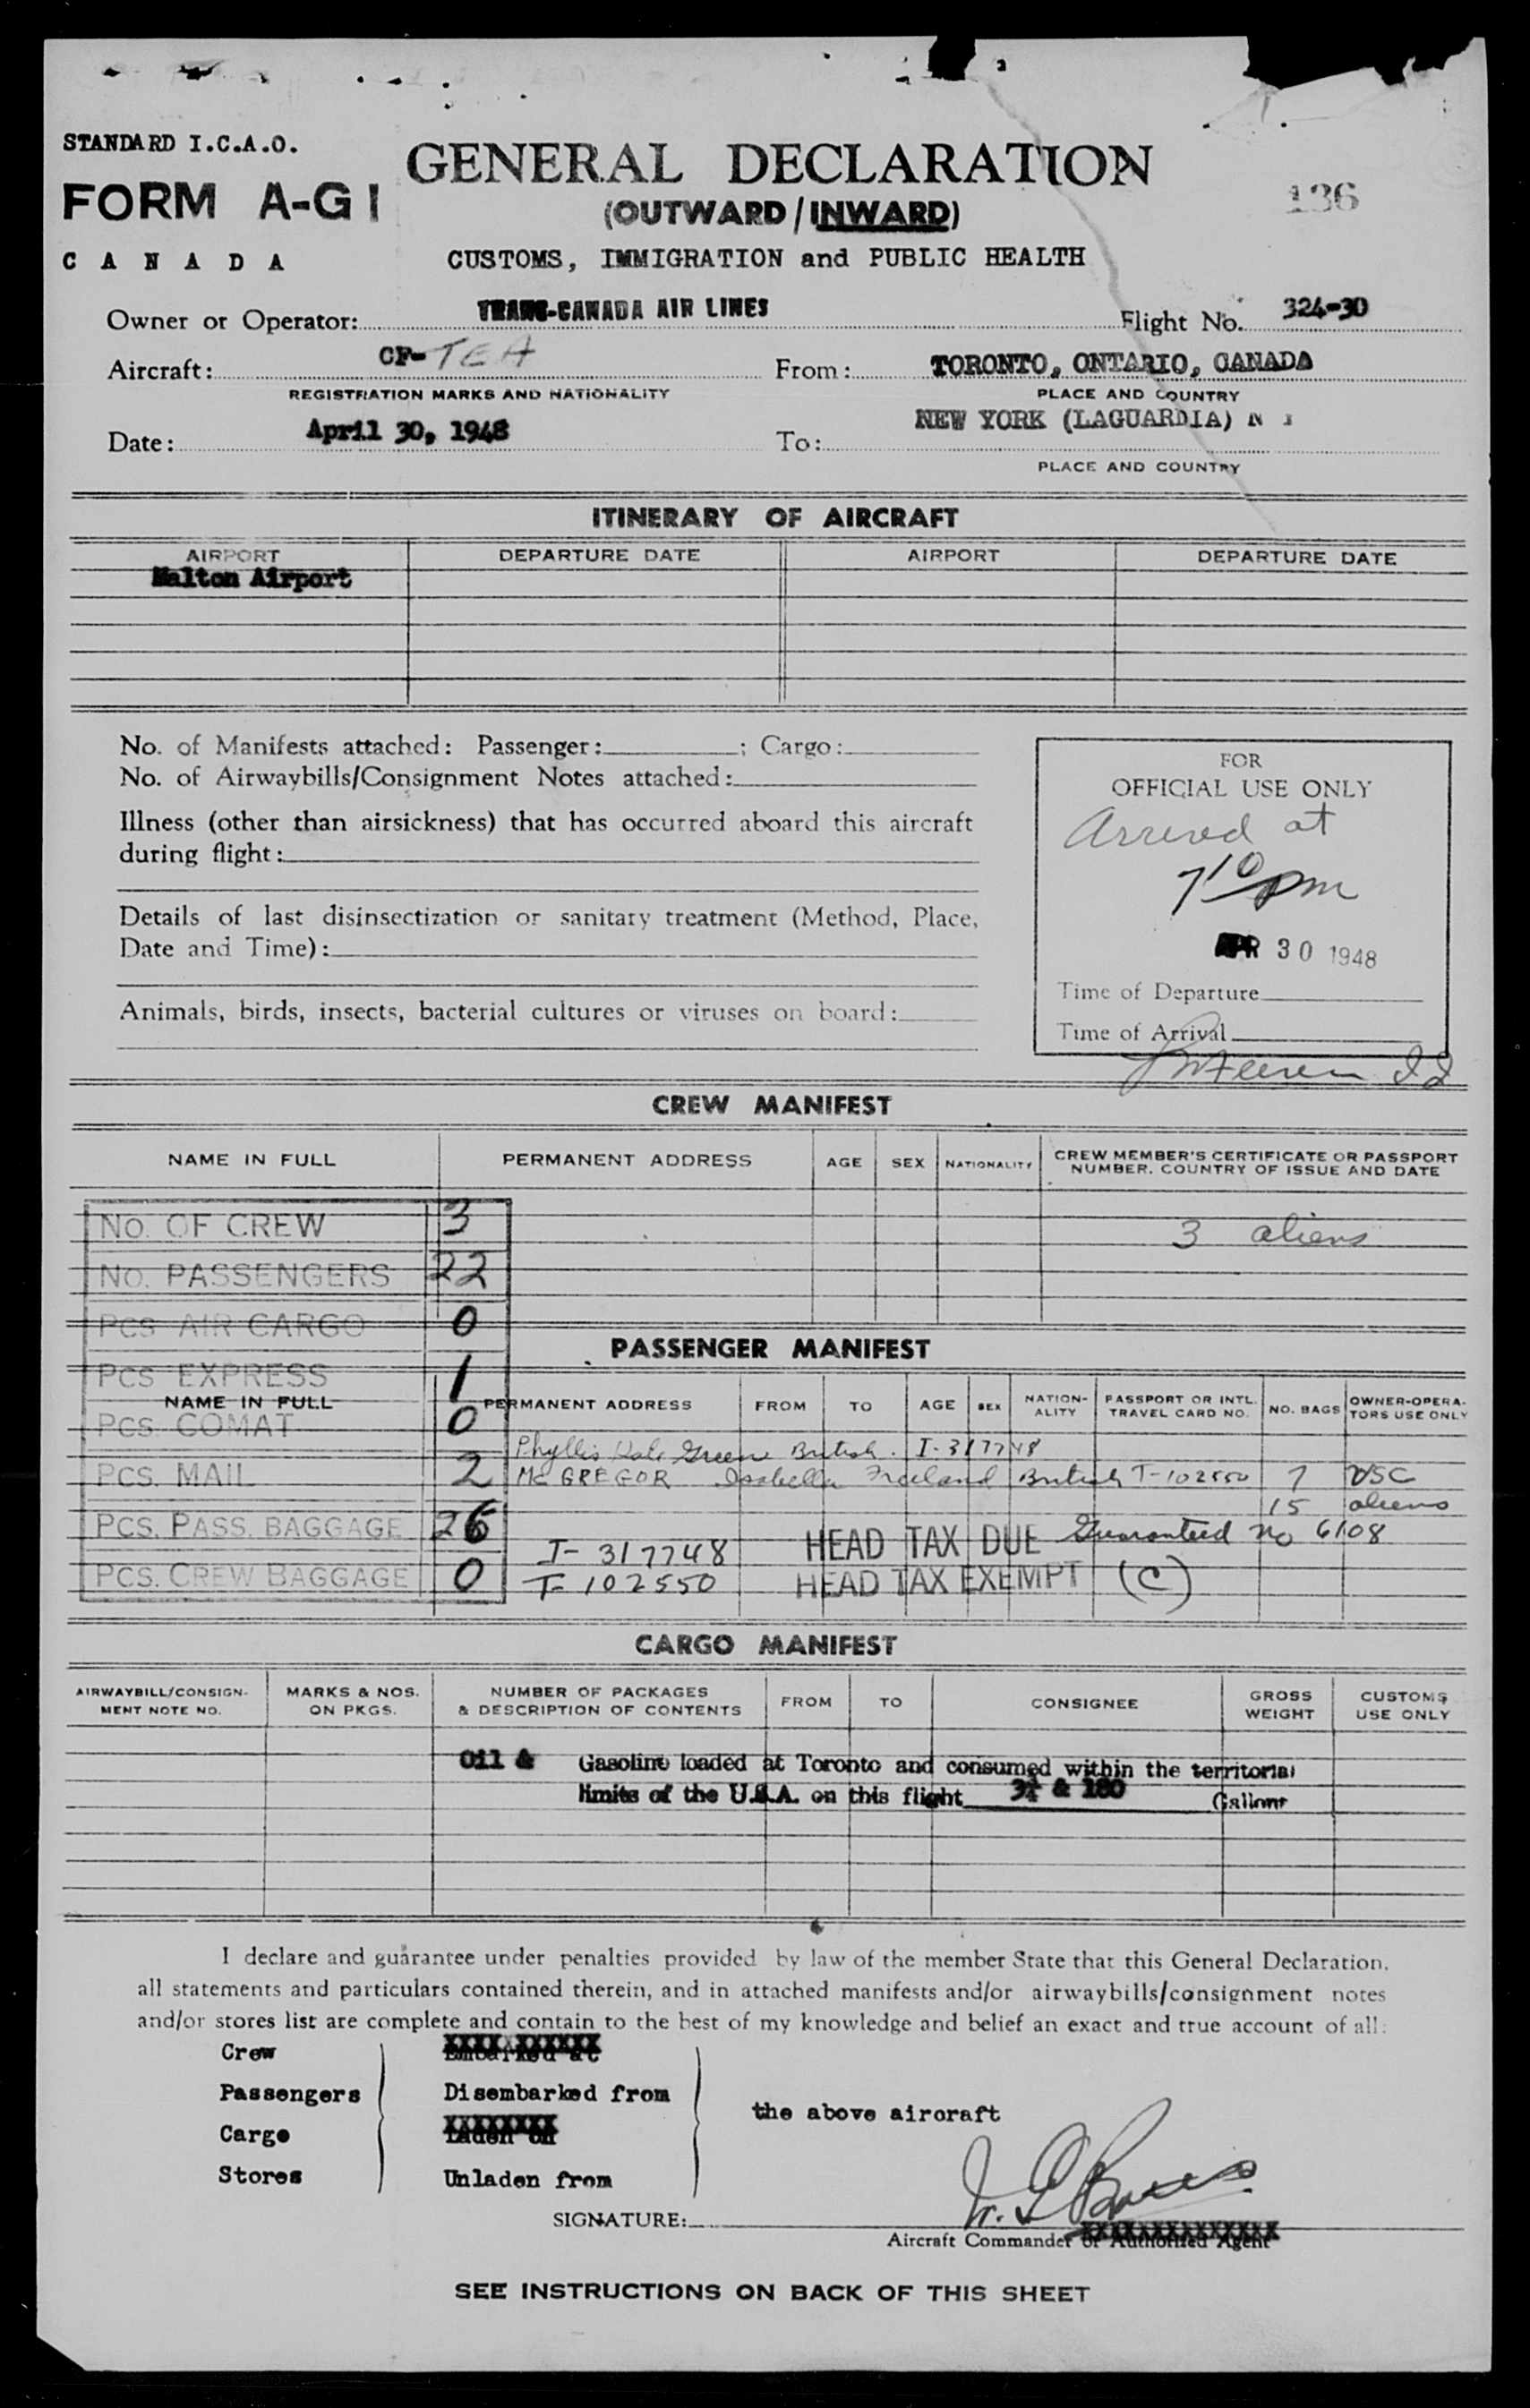 STANDARD I.C.A.O.
FORM A-G1
CANADA
GENERAL DECLARATION
(OUTWARD/INWARD)
CUSTOMS, IMMIGRATION and PUBLIC HEALTH
136
Owner or Operator: TRANS-CANADA AIR LINES Flight No. 324-30
Aircraft: CF-TEA From: TORONTO, ONTARIO, CANADA
REGISTRATION MARKS AND NATIONALITY PLACE AND COUNTRY
Date: April 30, 1948 To: NEW YORK (LAGUARDIA) N
PLACE AND COUNTRY
ITINERARY OF AIRCRAFT
AIRPORT DEPARTURE DATE AIRPORT DEPARTURE DATE
Malton Airport
No. of Manifests attached: Passenger: ; Cargo:
No. of Airwaybills/Consignment Notes attached:
Illness (other than airsickness) that has occurred aboard this aircraft
during flight:
Details of last disinsectization or sanitary treatment (Method, Place,
Date and Time):
Animals, birds, insects, bacterial cultures or viruses on board:
FOR
OFFICIAL USE ONLY
Arrived at
7 10 pm
APR 30 1948
Time of Departure
Time of Arrival
CREW MANIFEST
NAME IN FULL PERMANENT ADDRESS AGE SEX NATIONALITY CREW MEMBER'S CERTIFICATE OR PASSPORT
NUMBER, COUNTRY OF ISSUE AND DATE
No. OF CREW 3
3 aliens
No. PASSENGERS 22
PCS AIR CARGO 0
PASSENGER MANIFEST
PCS EXPRESS 1
NAME IN FULL PERMANENT ADDRESS FROM TO AGE SEX NATION-ALITY PASSPORT OR INTL. TRAVEL CARD NO. NO. BAGS OWNER-OPERA-TORS USE ONLY
PCS. COMAT 0
Phyllis Greene British. I-317748
PCS. MAIL 2 McGREGOR Isabella Freeland British T-102550 7 USC
15 aliens
PCS. PASS. BAGGAGE 26 HEAD TAX DUE Guaranteed no 6108
I-317748
PCS. CREW BAGGAGE 0 T-102550 HEAD TAX EXEMPT (C)
CARGO MANIFEST
AIRWAYBILL/CONSIGN-MENT NOTE NO. MARKS & NOS. ON PKGS. NUMBER OF PACKAGES & DESCRIPTION OF CONTENTS FROM TO CONSIGNEE GROSS WEIGHT CUSTOMS USE ONLY
Oil & Gasoline loaded at Toronto and consumed within the territorial
limits of the U.S.A. on this flight & 180 Gallons
I declare and guarantee under penalties provided by law of the member State that this General Declaration,
all statements and particulars contained therein, and in attached manifests and/or airwaybills/consignment notes
and/or stores list are complete and contain to the best of my knowledge and belief an exact and true account of all:
Crew Embarked at
Passengers Disembarked from
the above aircraft
Cargo Laden on
Stores Unladen from
SIGNATURE:
Aircraft Commander or Authorized Agent
SEE INSTRUCTIONS ON BACK OF THIS SHEET